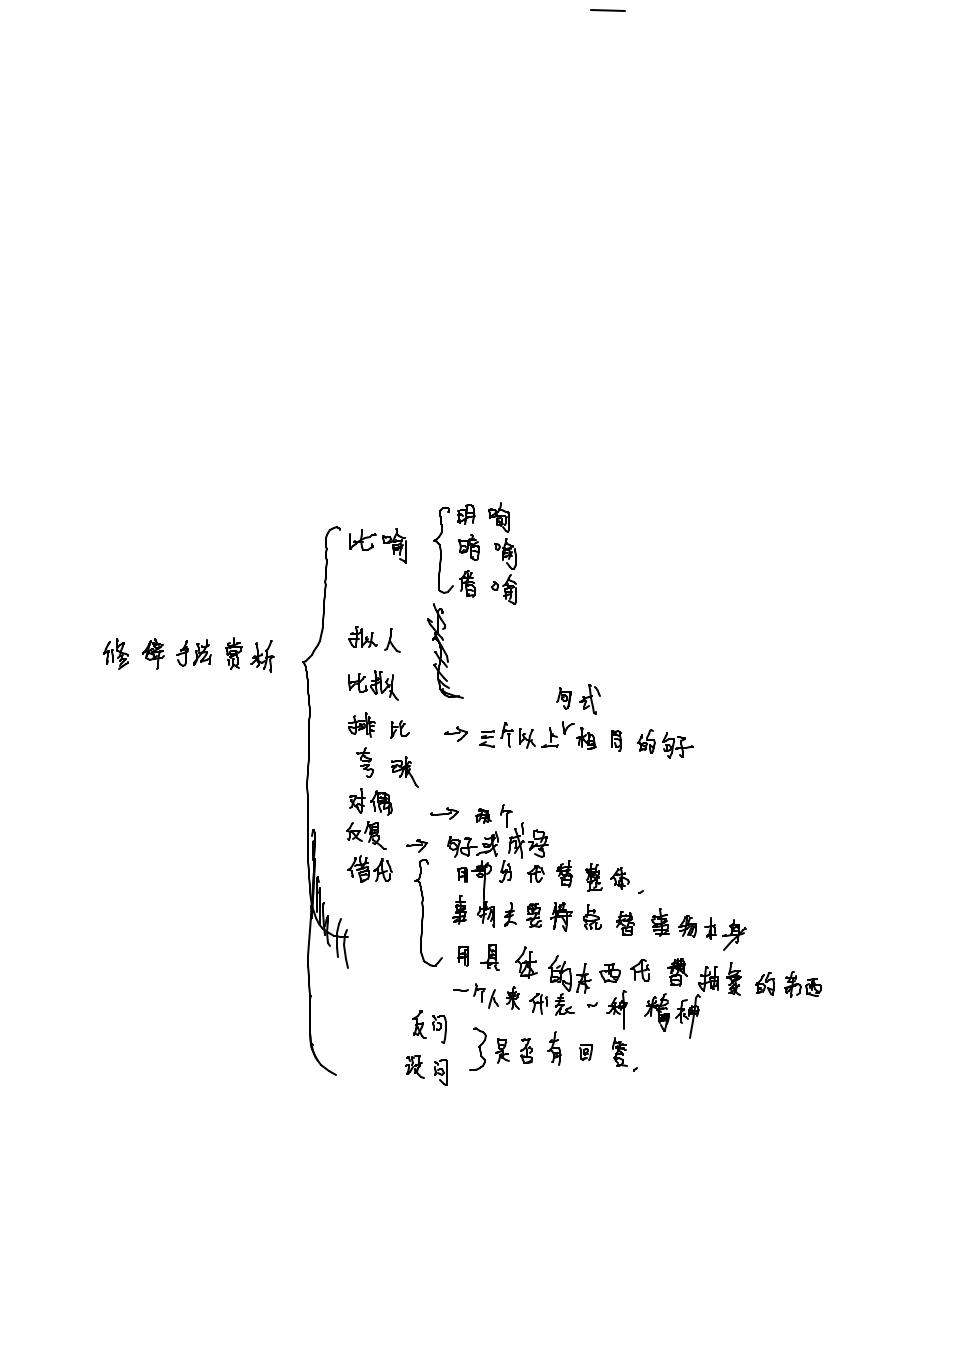 比喻
明喻
暗喻
借喻
修辞手法赏析
拟人
比拟
排比 → 三个以上句式相同的句子
夸张
对偶 → 两个
反复 → 句子或成语
借代
用部分代替整体.
事物主要特点替事物本身
用具体的东西代替抽象的东西
一个人来代表一种精神
反问
设问
是否有回答.